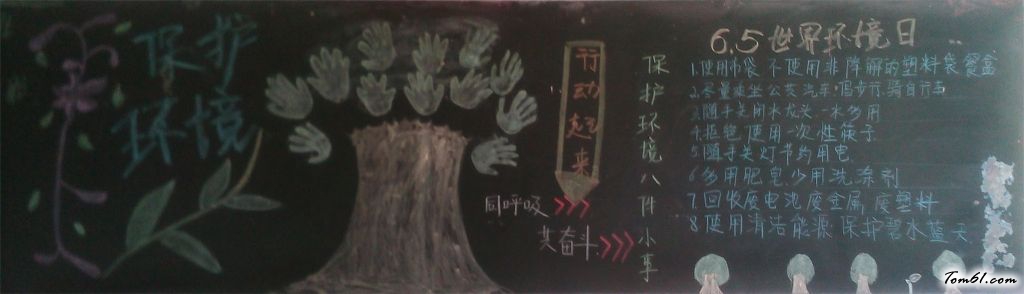 保护
环境
行动起来
同呼吸
共奋斗
保护环境八件小事
6.5世界环境日
1.使用布袋 不使用非降解的塑料袋餐盒
2.尽量乘坐公共汽车,步行,骑自行车
3.随手关闭水龙头 一水多用
4.拒绝使用一次性筷子
5.随手关灯节约用电
6多用肥皂少用洗涤剂
7回收废电池废金属废塑料
8使用清洁能源 保护碧水蓝天
Tom61.com